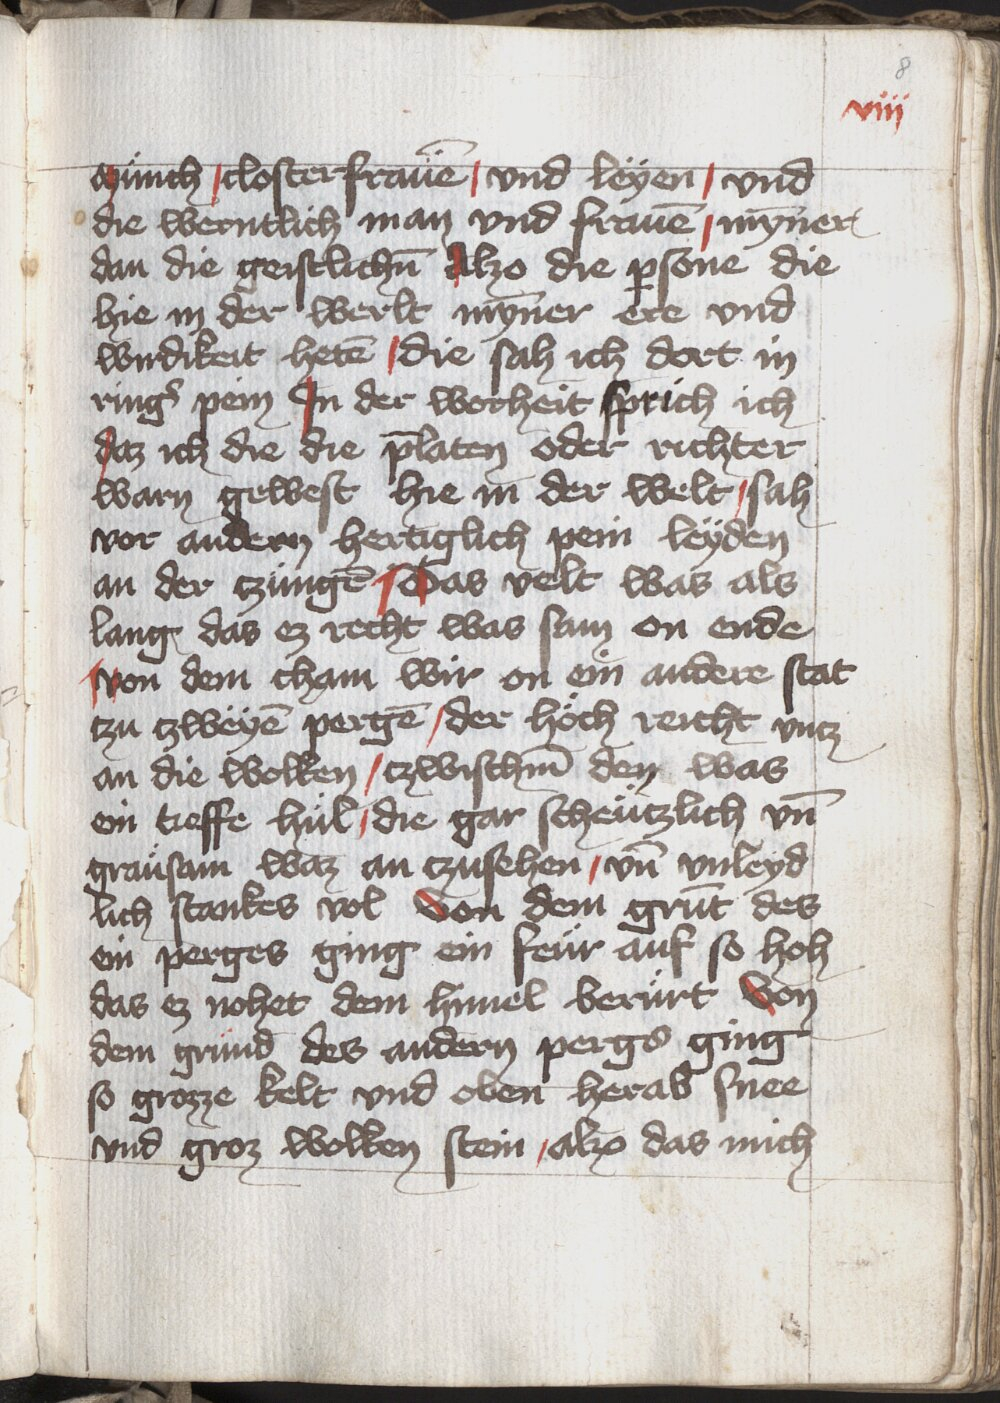 8
viij
münch / closterfraűē / vnd leÿen / vnd
die werntlich man vnd fraűē / mȳner
dan die geistlichn̄ Alzo die ꝑsone die
hie in der werlt mȳner ere vnd
wirdikeit hetē / die sah ich dort in
ringˀ pein In der worheit sprich ich
daz ich die die p̄laten oder richter
warn gewest hie in der welt / sah
vor andern hertiglich pein leÿden
an der czűngē / Das velt was als
lang das ez recht was sam on ende
von dem cham wir on ein andere stat
tzu tzweÿē pergē / der hőch reicht vntz
an die wolken / tzwischn̄ den was
ein tieffe hűl / die gar scheűtzlich vn̄
graűsam waz an tzusehen / vn̄ vnleyd
lich stankes vol Von dem grűt̄ des
ein perges ging ein feűr auf so hoh
das ez nohet dem himel berűrt Von
dem grűnd des andern pergs ging
so grozze kelt vnd oben herab snee
vnd groz wolken stein / alzo das mich